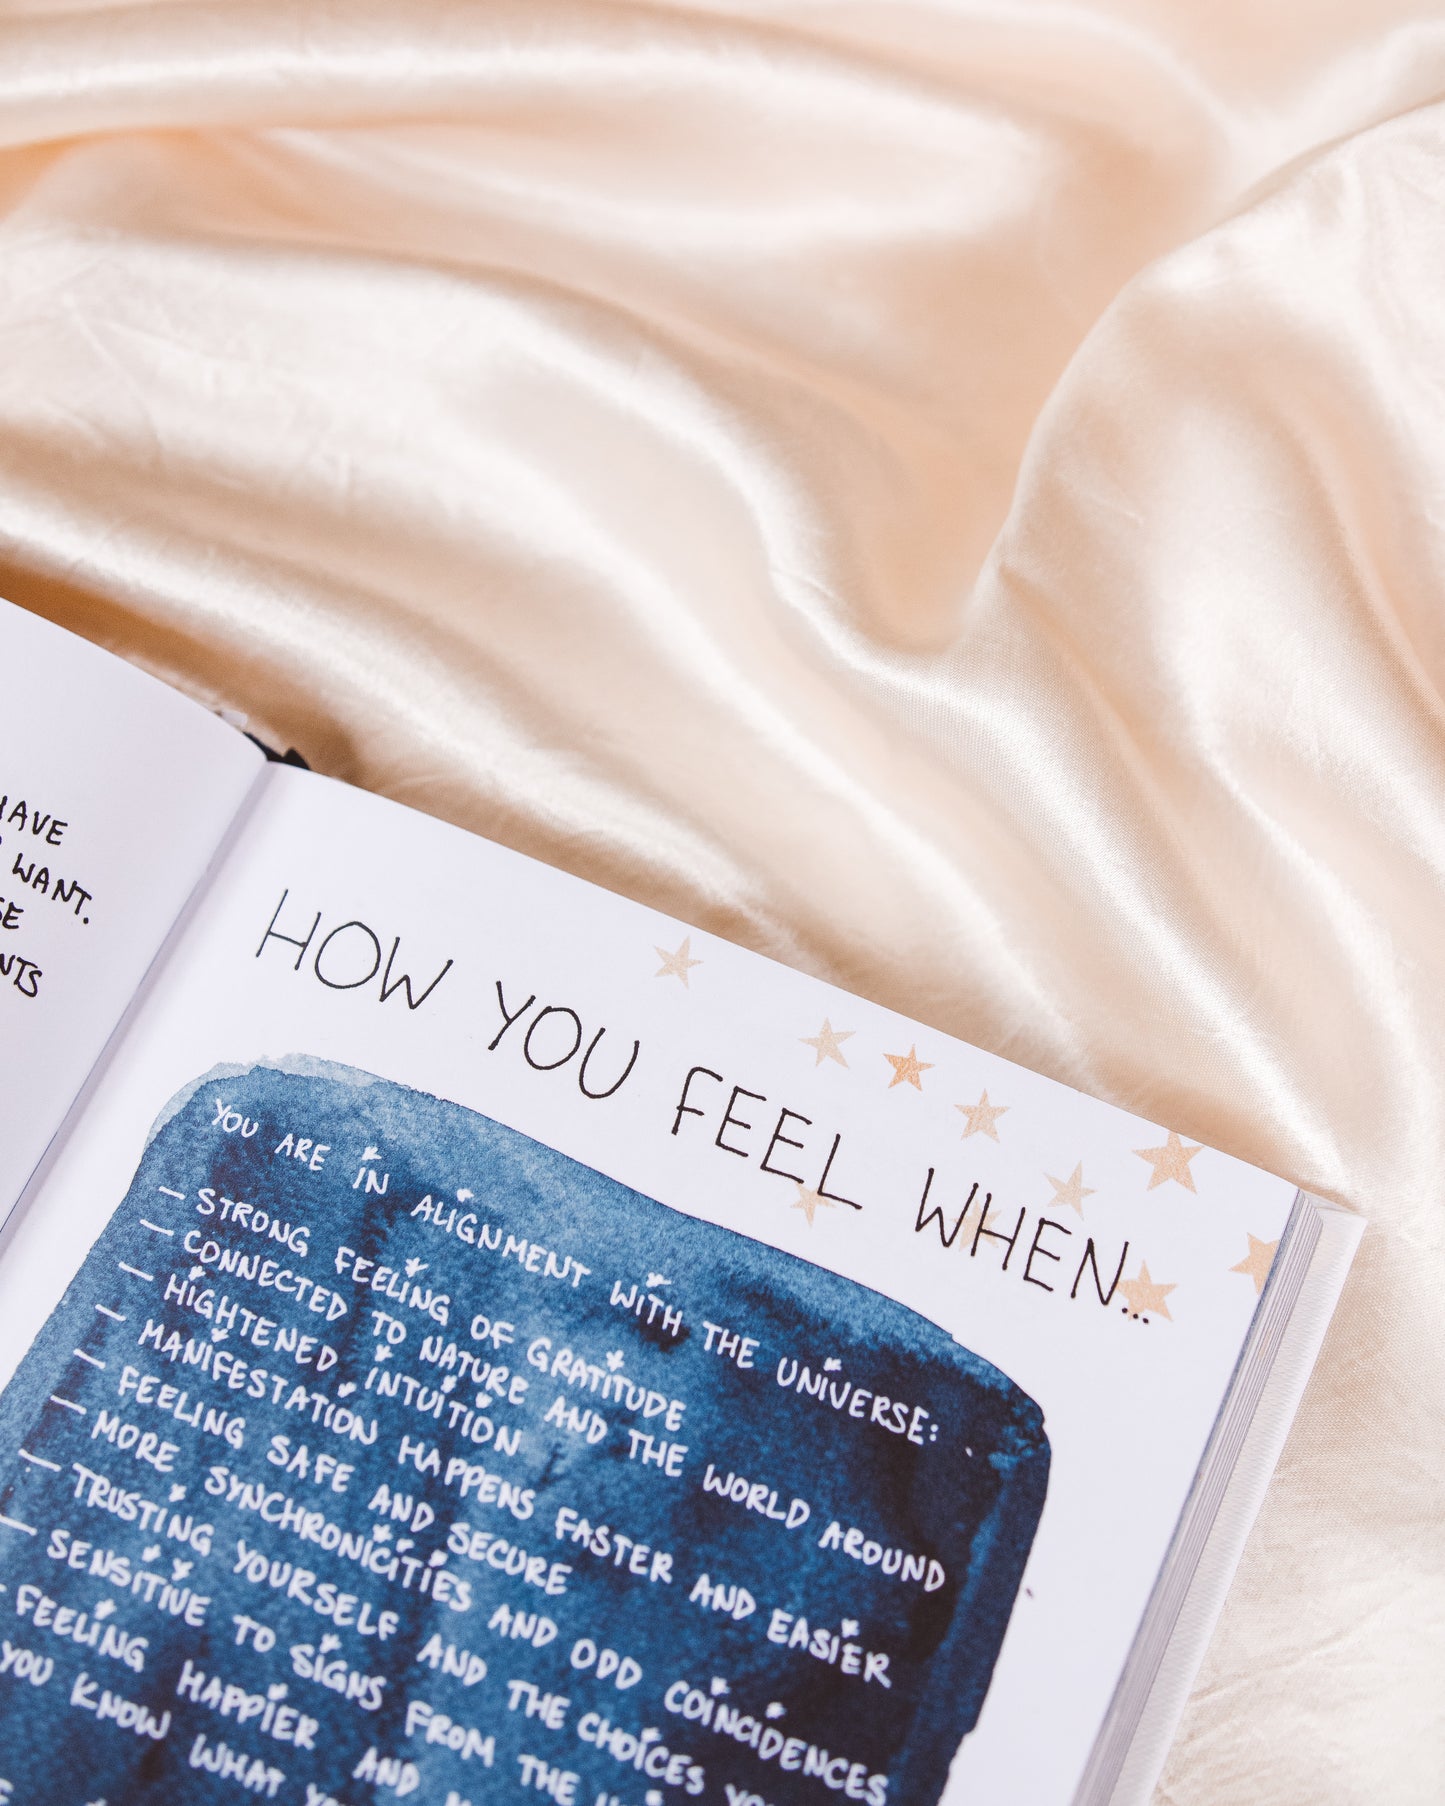 WANT.
HOW YOU FEEL WHEN...
YOU ARE IN ALIGNMENT WITH THE UNIVERSE:
- STRONG FEELING OF GRATITUDE
- CONNECTED TO NATURE AND THE WORLD AROUND
- HIGHTENED INTUITION
- MANIFESTATION HAPPENS FASTER AND EASIER
- FEELING SAFE AND SECURE
- MORE SYNCHRONICITIES AND ODD COINCIDENCES
- TRUSTING YOURSELF AND THE CHOICES
- SENSITIVE TO SIGNS FROM THE
- FEELING HAPPIER AND
YOU KNOW WHAT